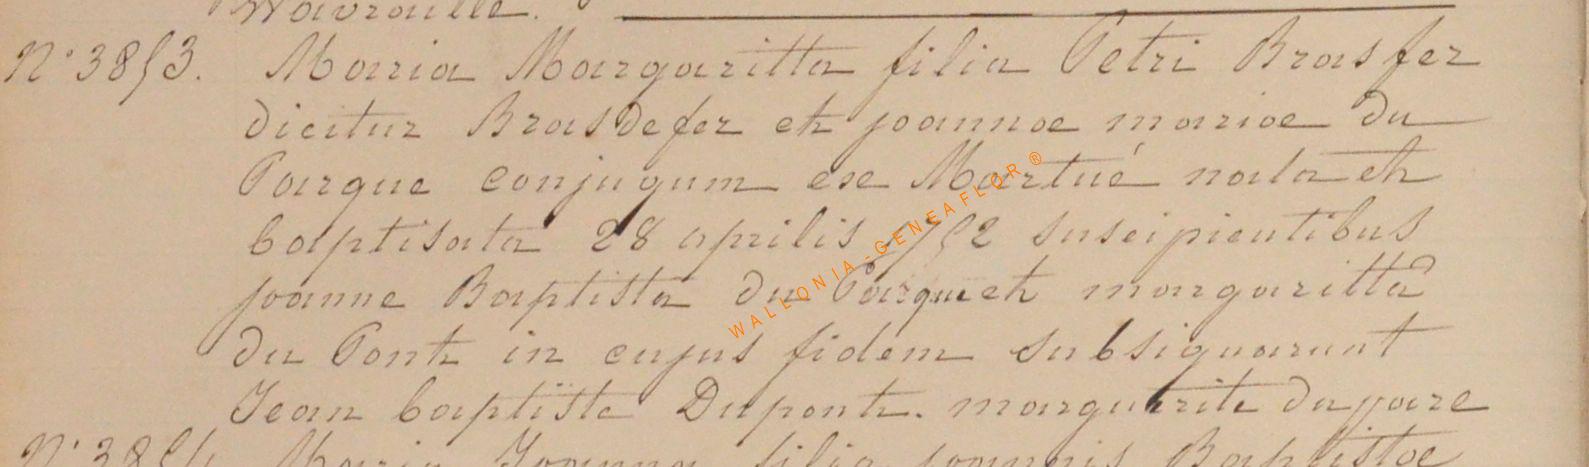 Wavraille.
N° 3853. Maria Margaritta filia Petri Brasfer
dicitur Brasdefer et joannae mariae du
Parque conjugum ex Martué nata et
baptisata 28 aprilis 1752 suscipientibus
joanne Baptista du Parque et margaritta
du Pont in cujus fidem subsignarunt
Jean baptiste Dupont. marguerite duparc
N° 3854 Maria Joanna filia joannis Baptistae
WALLONIA-GENEAFLOR ®